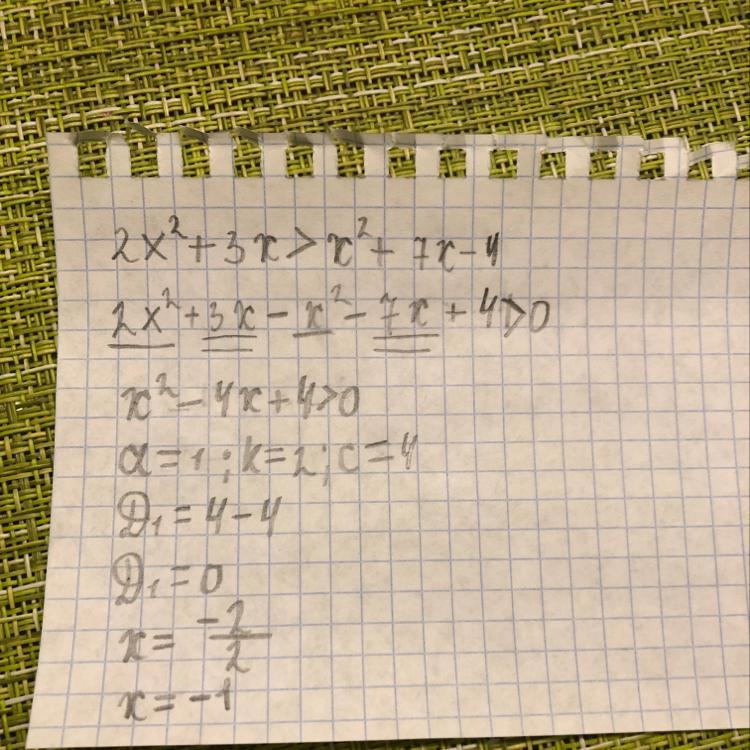 2x² + 3x > x² + 7x - 4
2x² + 3x - x² - 7x + 4 > 0
x² - 4x + 4 > 0
a = 1; k = 2; c = 4
D₁ = 4 - 4
D₁ = 0
x = -2/2
x = -1